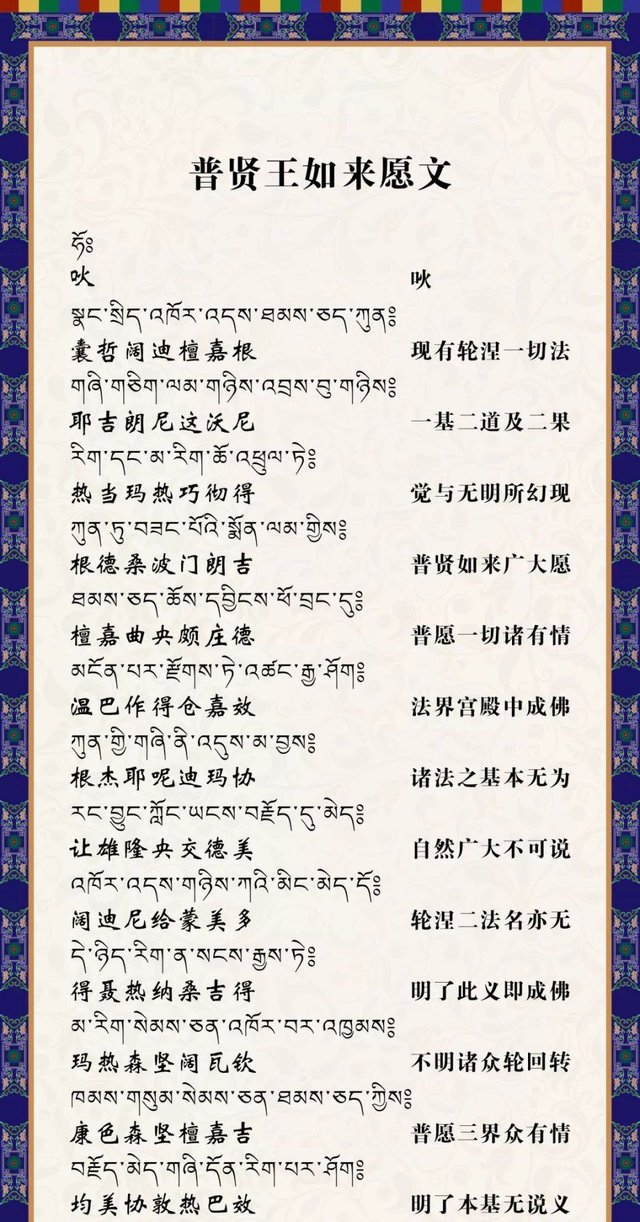 普贤王如来愿文
ཧོ༔
吙 吙
སྣང་སྲིད་འཁོར་འདས་ཐམས་ཅད་ཀུན༔
囊哲阔迪檀嘉根 现有轮涅一切法
གཞི་གཅིག་ལམ་གཉིས་འབྲས་བུ་གཉིས༔
耶吉朗尼这沃尼 一基二道及二果
རིག་དང་མ་རིག་ཆོ་འཕྲུལ་ཏེ༔
热当玛热巧彻得 觉与无明所幻现
ཀུན་ཏུ་བཟང་པོའི་སྨོན་ལམ་གྱིས༔
根德桑波门朗吉 普贤如来广大愿
ཐམས་ཅད་ཆོས་དབྱིངས་ཕོ་བྲང་དུ༔
檀嘉曲央颇庄德 普愿一切诸有情
མངོན་པར་རྫོགས་ཏེ་འཚང་རྒྱ་ཤོག༔
温巴作得仓嘉效 法界宫殿中成佛
ཀུན་གྱི་གཞི་ནི་འདུས་མ་བྱས༔
根杰耶呢迪玛协 诸法之基本无为
རང་བྱུང་ཀློང་ཡངས་བརྗོད་དུ་མེད༔
让雄隆央交德美 自然广大不可说
འཁོར་འདས་གཉིས་ཀའི་མིང་མེད་དོ༔
阔迪尼给蒙美多 轮涅二法名亦无
དེ་ཉིད་རིག་ན་སངས་རྒྱས་ཏེ༔
得聂热纳桑吉得 明了此义即成佛
མ་རིག་སེམས་ཅན་འཁོར་བར་འཁྱམས༔
玛热森坚阔瓦钦 不明诸众轮回转
ཁམས་གསུམ་སེམས་ཅན་ཐམས་ཅད་ཀྱིས༔
康色森坚檀嘉吉 普愿三界众有情
བརྗོད་མེད་གཞི་དོན་རིག་པར་ཤོག༔
均美协敦热巴效 明了本基无说义